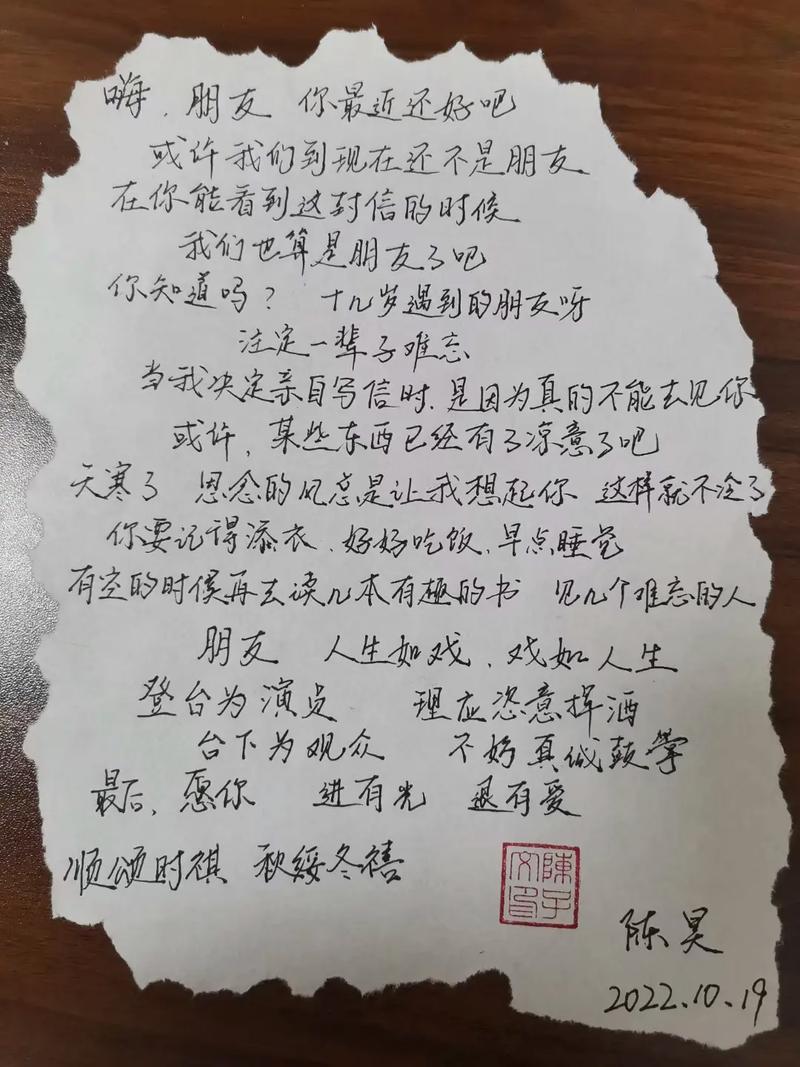 嗨，朋友 你最近还好吧
或许我们到现在还不是朋友
在你能看到这封信的时候
我们也算是朋友了吧
你知道吗？ 十几岁遇到的朋友呀
注定一辈子难忘
当我决定亲自写信时，是因为真的不能去见你
或许，某些东西已经有了凉意了吧
天寒了 思念的风总是让我想起你 这样就不冷了
你要记得添衣、好好吃饭、早点睡觉
有空的时候再去读几本有趣的书 见几个难忘的人
朋友 人生如戏、戏如人生
登台为演员 理应恣意挥洒
台下为观众 不妨真诚鼓掌
最后，愿你 进有光 退有爱
顺颂时祺 秋绥冬禧
陈昊
2022.10.19